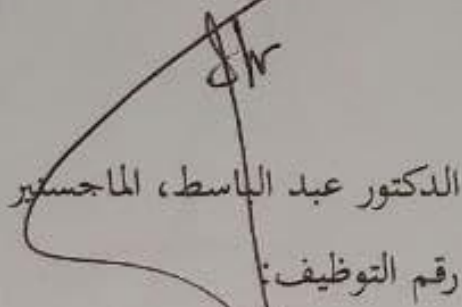 الدكتور عبد الباسط، الماجستير
رقم التوظيف: